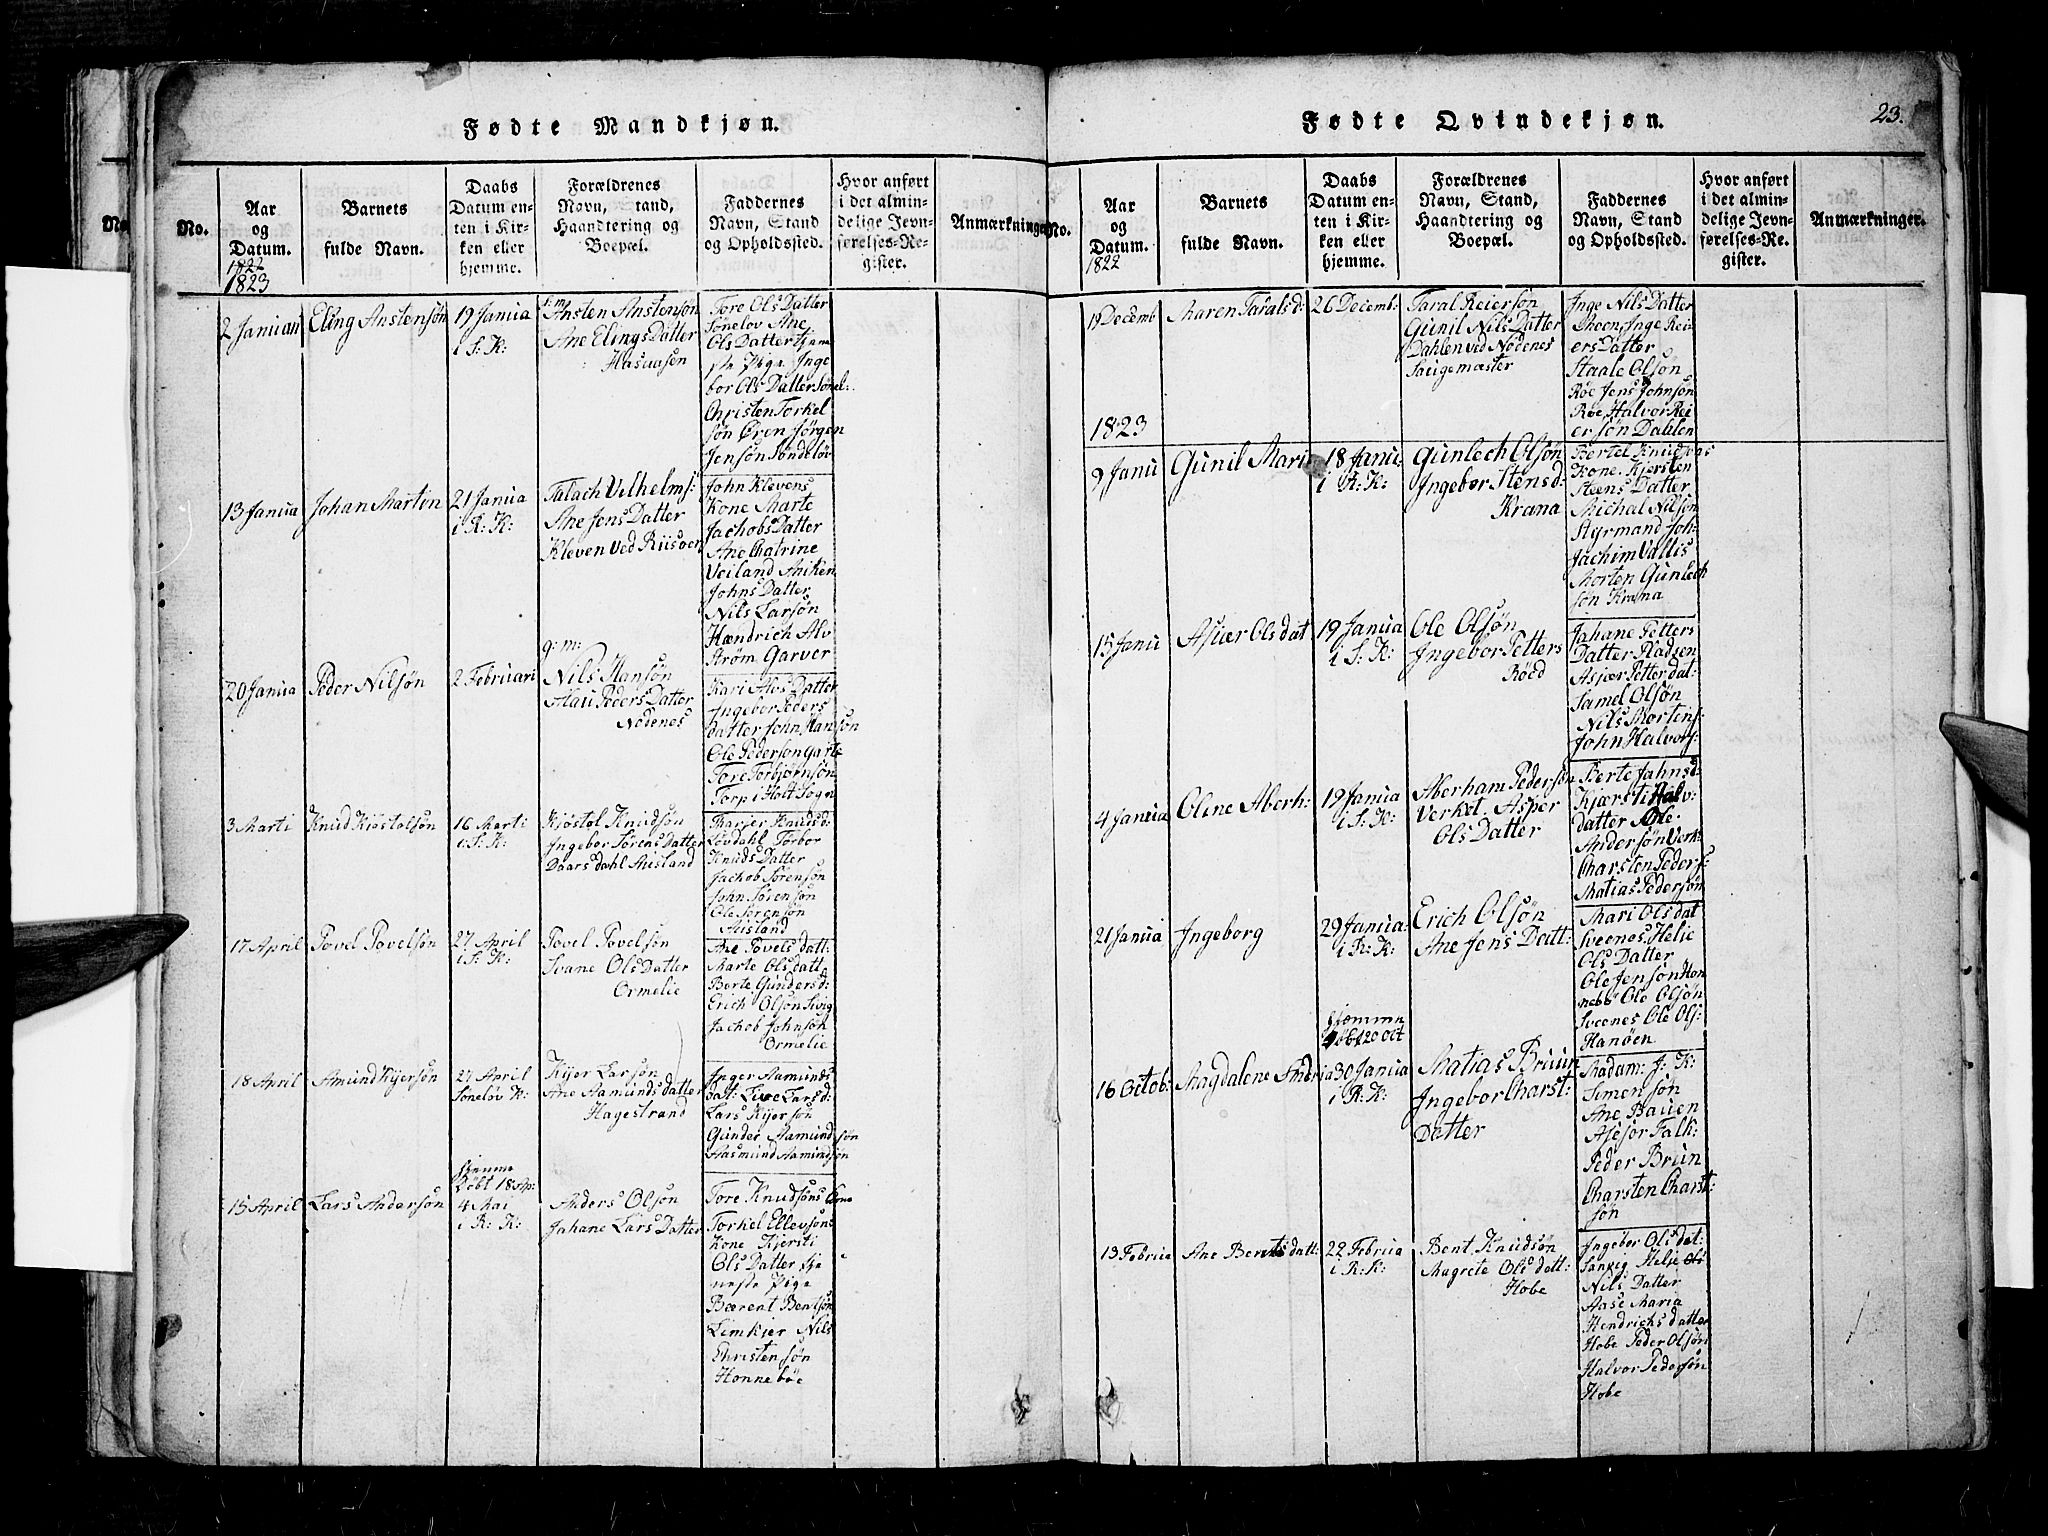 Fødte Mandkjøn.
No.
Aar
og
Datum.
1822
1823
Barnets
fulde Navn.
Daabs
Datum en-
ten i Kir-
ken eller
hjemme.
Forældrenes
Navn, Stand,
Haandtering og
Boepæl.
Faddernes
Navn, Stand
og Opholdssted.
Hvor anført
i det almin-
delige Jevn-
førelses-Re-
gister.
Anmærkninger
2 Januari
Eling Anstensøn
19 Janua
i S: K:
Ansten Anstensøn
Ane Elings Datter
Hasaasen
Tore Ols Datter
Sønelov Ane
Ols Datter tjene
ste Pige Inge
bor Ols Datter Sønel:
Christen Torkel
søn Øren Jørgen
Jensøn Søndeløv
13 Janua
Johan Martin
21 Janua
i R: K:
Talach Vilhelms:
Ane Jens Datter
Kleven ved Riisøer
John Klevens
Kone Marte
Jachobs Datter
Ane Chatrine
Veiland Aniken
Johns Datter
Nils Larsøn
Hændrich Alv
Strøm Garver
20 Janua
Peder Nilsøn
2 Februari
g: m:
Nils Hansøn
Mari Peders Datter
Nødenes
Kari Alvs Datter
Ingebor Peders
datter John Hansøn
Ole Pedersøn Garte
Tore Torbjørnsøn
Torp i Holt Sogn
3 Marti
Knud Kiøstolsøn
16 Marti
i S: K:
Kjøstøl Knudsøn
Ingebor Sørens Datter
Daarsdahl Auisland
Marjer Knudsd:
Løvdahl Torbor
Knuds Datter
Jachob Sørensøn
John Sørensøn
Ole Sørensøn
Auisland
17 April
Povel Povelsøn
27 April
i S: K:
Povel Povelsøn
Svane Ols Datter
Ormelie
Ane Povels datt:
Marte Ols datt
Berte Gunders d:
Erich Olsøn Svig
Jachob Johnsøn
Ormelie
18 April
Amund Kijersøn
27 April
Søneløv K:
Kijer Larsøn
Ane Aamunds datter
Hagestrand
Inger Aamunds
dat: Live Lars d:
Lars Kijersøn
Gunder Aamundsøn
Aasmund Aamundsøn
15 April
Lars Andersøn
hjemme
Døbt 18 Ap:
4 Mai
i R: K:
Anders Olsøn
Jahane Lars Datter
Tore Knudsøns Kone
Torkel Ellevsøns
Kone Kjersti
Ols Datter tje
neste Pige
Bærent Bentsøn
Limkjer Nils
Christensøn
Honnebøe
Fødte Qvindekjøn.
23.
No.
Aar
og
Datum.
1822
Barnets
fulde Navn.
Daabs
Datum en-
ten i Kir-
ken eller
hjemme.
Forældrenes
Navn, Stand,
Haandtering og
Boepæl.
Faddernes
Navn, Stand
og Opholdsted.
Hvor anført
i det almin-
delige Jevn-
førelses-Re-
gister.
Anmærkninger.
19 Decemb
Maren Tarals d:
26 Decemb:
Taral Reiersøn
Gunil Nils Datter
Dahlen ved Nødenes
Saugemester
Inge Nils Datter
Steen, Inge Rei-
ers Datter
Staale Olsøn
Røe Jens Johnsøn
Røe, Halvor Rei
ersøn Dahlen
1823
9 Janu
Gunil Maria
18 Janu.
i R: K:
Gunlech Olsøn
Ingebor Stens d:
Krana
Bertel Knudsøns
Kone. Kjersten
Steens Datter
Michal Nilsøn
Styrmand Joh:
Jachim Vallis
Morten Gunlech
søn Krana
15 Janu
Asiær Ols dat
19 Janua
i S: K:
Ole Olsøn
Ingebor Petters
Røed
Jahane Petters
Datter Madsen
Asjær Petter dat:
Samel Olsøn
Nils Mortens:
John Halvors:
4 Janua
Oline Aberh:
19 Janua
i S: K:
Aberham Pedersøn
Verket. Asper
Ols Datter
Berte Jahns d:
Kjærsti Halv:
datter Ole
Andersøn Verk:
Charsten Peders:
Matias Pedersøn
21 Janua
Ingeborg
29 Janua:
i R: K:
Erich Olsøn
Ane Jens Datt:
Mari Ols dat
Sveenes Helie
Ols Datter
Ole Jensøn Hon
nebø Ole Olsøn
Sveenes Ole Ols:
Hanøen
16 Octob:
Magdalene Andria
hjemme
døbt 20 Oct
30 Janua
i R: K:
Matias Bruun
Ingebor Charst:
Datter
Madam: J. K:
Simensøn
Ane Bauen
Asesor Falk:
Peder Brun
Charsten Charst:
søn
13 Februa
Ane Bentsdatt:
22 Februa
i R: K:
Bent Knudsøn
Magrete Ols datt:
Hobe
Ingebor Ols dat:
Sanvig Helje Ols
Nils Datter
Aase Maria
Hendricks datter
Hobe Peder Olsøn
Halvor Pedersøn
Hobe